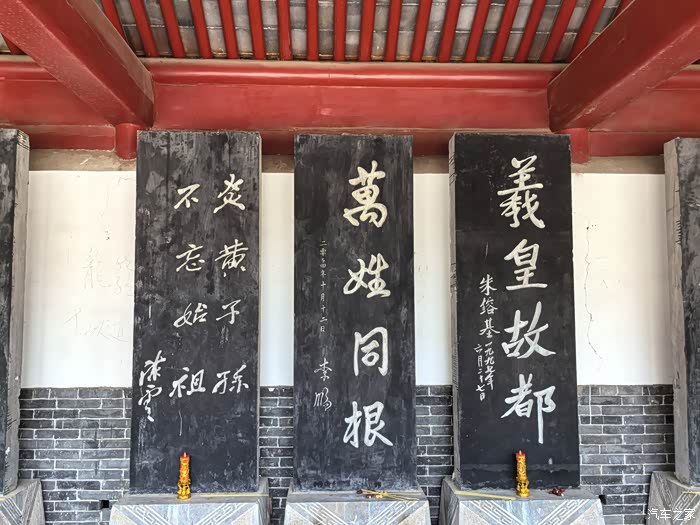 羲皇故都
朱鎔基一九九七年
六月二十七日
萬姓同根
二零零四年十月十二日
李鵬
炎黄子孫
不忘始祖
汽车之家